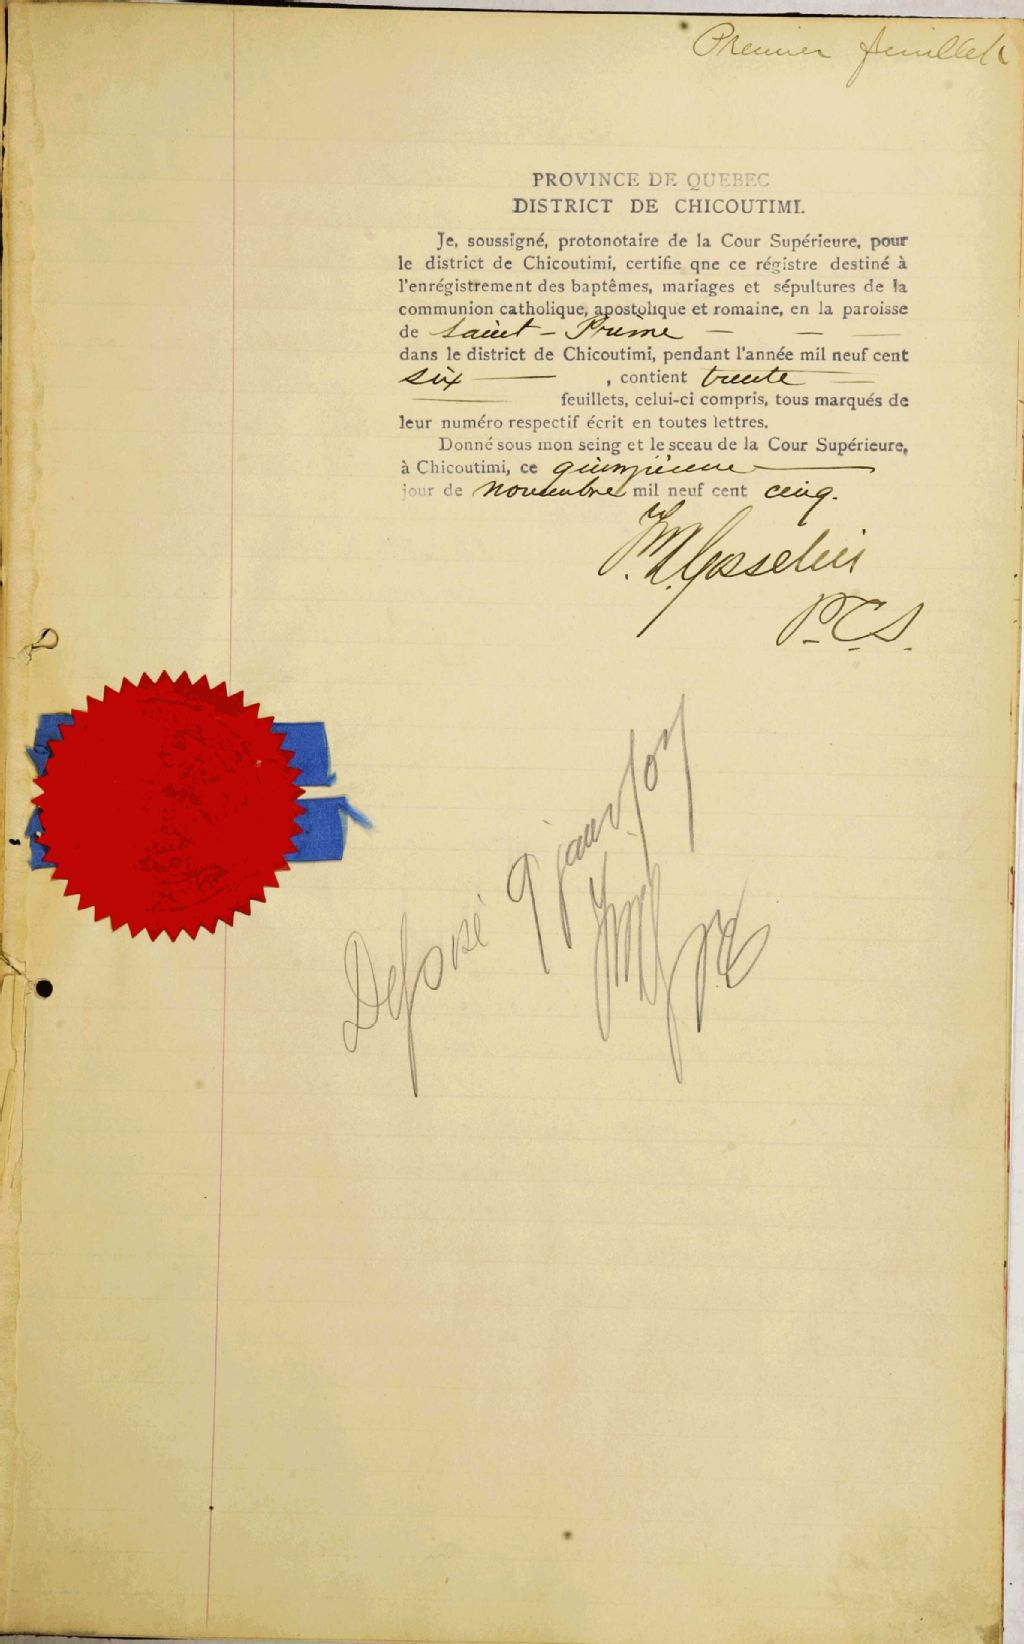 Premier feuillet
PROVINCE DE QUEBEC
DISTRICT DE CHICOUTIMI.
Je, soussigné, protonotaire de la Cour Supérieure, pour
le district de Chicoutimi, certifie qne ce régistre destiné à
l'enrégistrement des baptêmes, mariages et sépultures de la
communion catholique, apostolique et romaine, en la paroisse
de Saint-Prime — — —
dans le district de Chicoutimi, pendant l'année mil neuf cent
six — , contient trente —
— feuillets, celui-ci compris, tous marqués de
leur numéro respectif écrit en toutes lettres.
Donné sous mon seing et le sceau de la Cour Supérieure,
à Chicoutimi, ce quinzième —
jour de novembre mil neuf cent cinq.
Gosselin
P.C.S.
Déposé 9 janv. 07